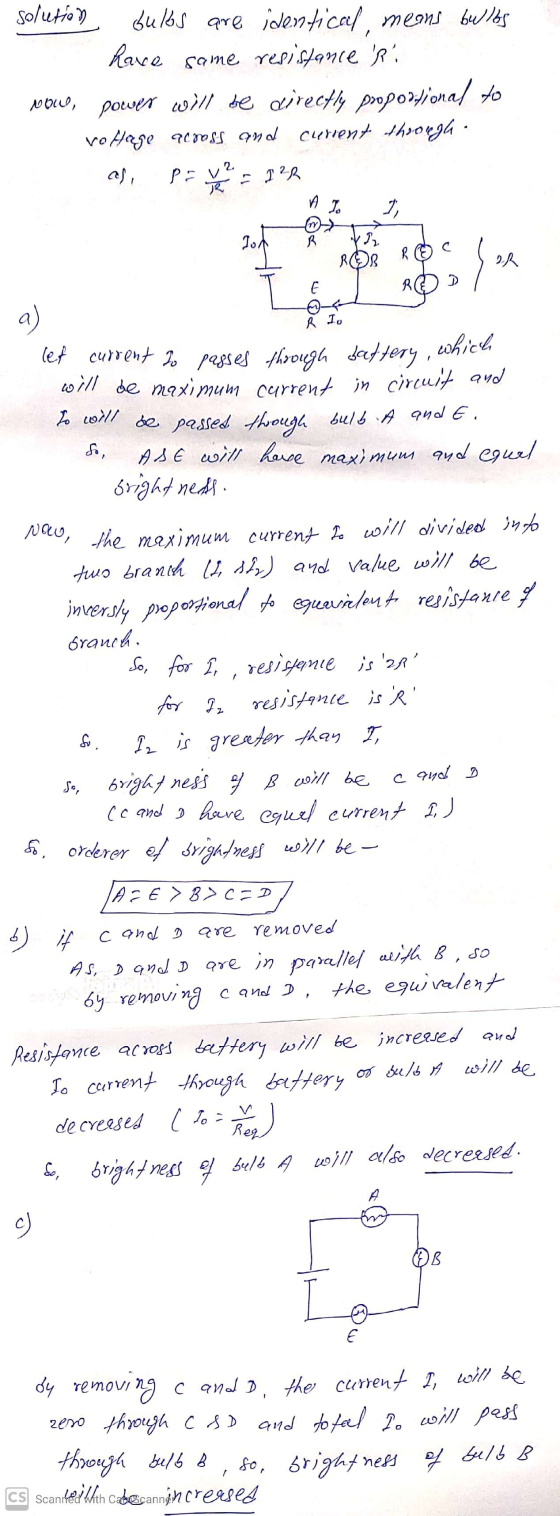 Solution bulbs are identical, means bulbs
have same resistance 'R'.
Now, power will be directly proportional to
voltage across and current through.
as, P = V²/R = I²R
A I₀ I₁
I₀ R I₂ R B R C
R D } 2R
E
R I₀
a)
let current I₀ passes through battery, which
will be maximum current in circuit and
I₀ will be passed through bulb A and E.
So, A & E will have maximum and equal
brightness.
Now, the maximum current I₀ will divided into
two branch (I₁ & I₂) and value will be
inversly proportional to equavirlent resistance of
branch.
So, for I₁, resistance is '2R'
for I₂ resistance is 'R'
So. I₂ is greater than I₁
So, brightness of B will be c and D
(c and D have equal current I₁)
So, orderer of brightness will be —
A = E > B > C = D
b) if C and D are removed
As, D and D are in parallel with B, so
by removing c and D, the equivalent
Resistance across battery will be increased and
I₀ current through battery or bulb A will be
decreased ( I₀ = V/Req )
So, brightness of bulb A will also decreased.
c)
A
B
E
By removing c and D, the current I₁ will be
zero through C & D and total I₀ will pass
through bulb B, so, brightness of bulb B
will be increased
CS Scanned with CamScanner